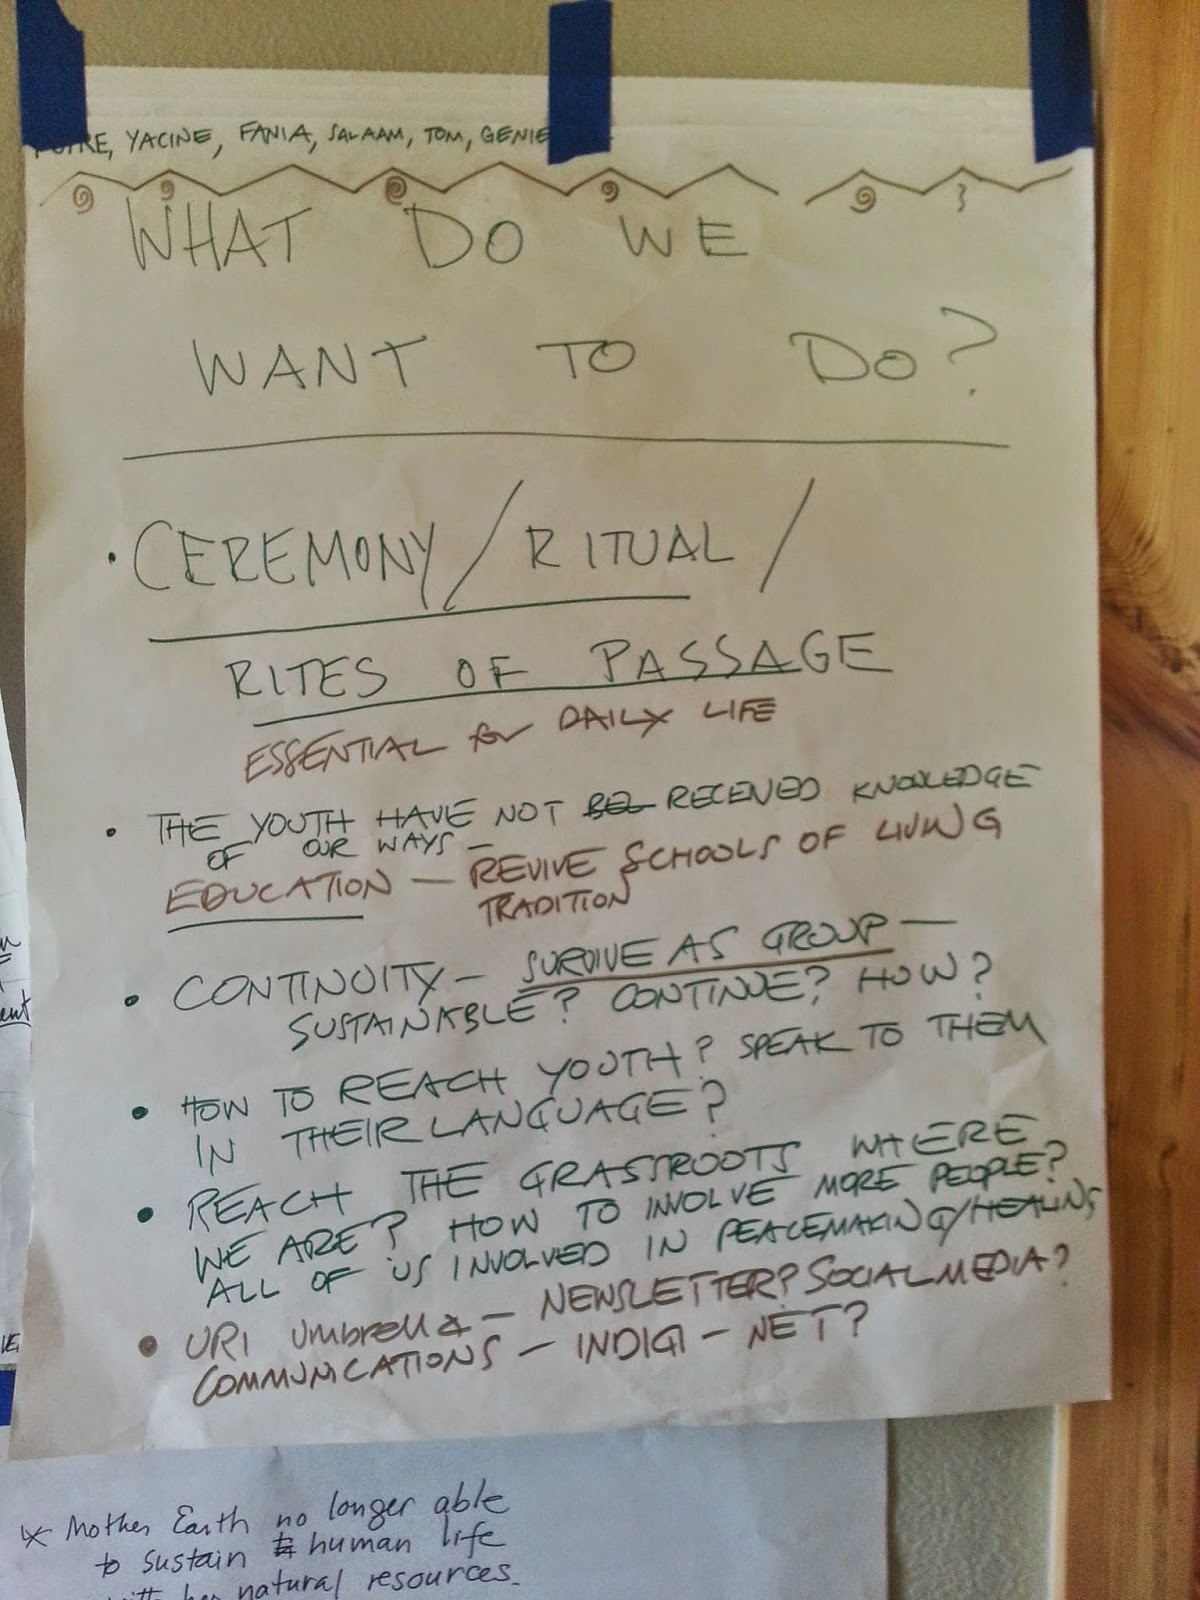 YACINE, FANIA, SALAAM, TOM, GENIE
WHAT DO WE
WANT TO DO?
• CEREMONY / RITUAL /
RITES OF PASSAGE
ESSENTIAL for DAILY LIFE
• THE YOUTH HAVE NOT RECEIVED KNOWLEDGE
OF OUR WAYS -
EDUCATION - REVIVE SCHOOLS OF LIVING
TRADITION
• CONTINUITY - SURVIVE AS GROUP -
SUSTAINABLE? CONTINUE? HOW?
• HOW TO REACH YOUTH? SPEAK TO THEM
IN THEIR LANGUAGE?
• REACH THE GRASSROOTS WHERE
WE ARE? HOW TO INVOLVE MORE PEOPLE?
ALL OF US INVOLVED IN PEACEMAKING/HEALING
• URI UmbrellA - NEWSLETTER? SOCIAL MEDIA?
COMMUNICATIONS - INDIGI - NET?
* Mother Earth no longer able
to sustain human life
her natural resources.